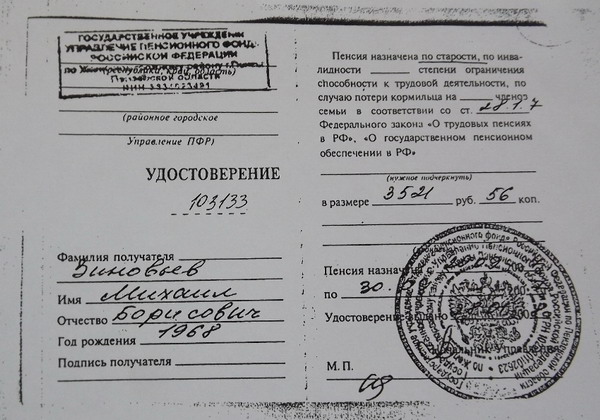 ГОСУДАРСТВЕННОЕ УЧРЕЖДЕНИЕ
УПРАВЛЕНИЕ ПЕНСИОННОГО ФОНДА
РОССИЙСКОЙ ФЕДЕРАЦИИ
(республики, край, область)
(районное городское
Управление ПФР)
УДОСТОВЕРЕНИЕ
103133
Фамилия получателя
Зиновьев
Имя Михаил
Отчество Борисович
Год рождения 1968
Подпись получателя
Пенсия назначена по старости, по инва-
лидности степени ограничения
способности к трудовой деятельности, по
случаю потери кормильца на членов
семьи в соответствии со ст. 28.1.7
Федерального закона «О трудовых пенсиях
в РФ», «О государственном пенсионном
обеспечении в РФ»
(нужное подчеркнуть)
в размере 3521 руб. 56 коп.
Пенсия назначена
по 30.
Удостоверение
Управления
М.П.